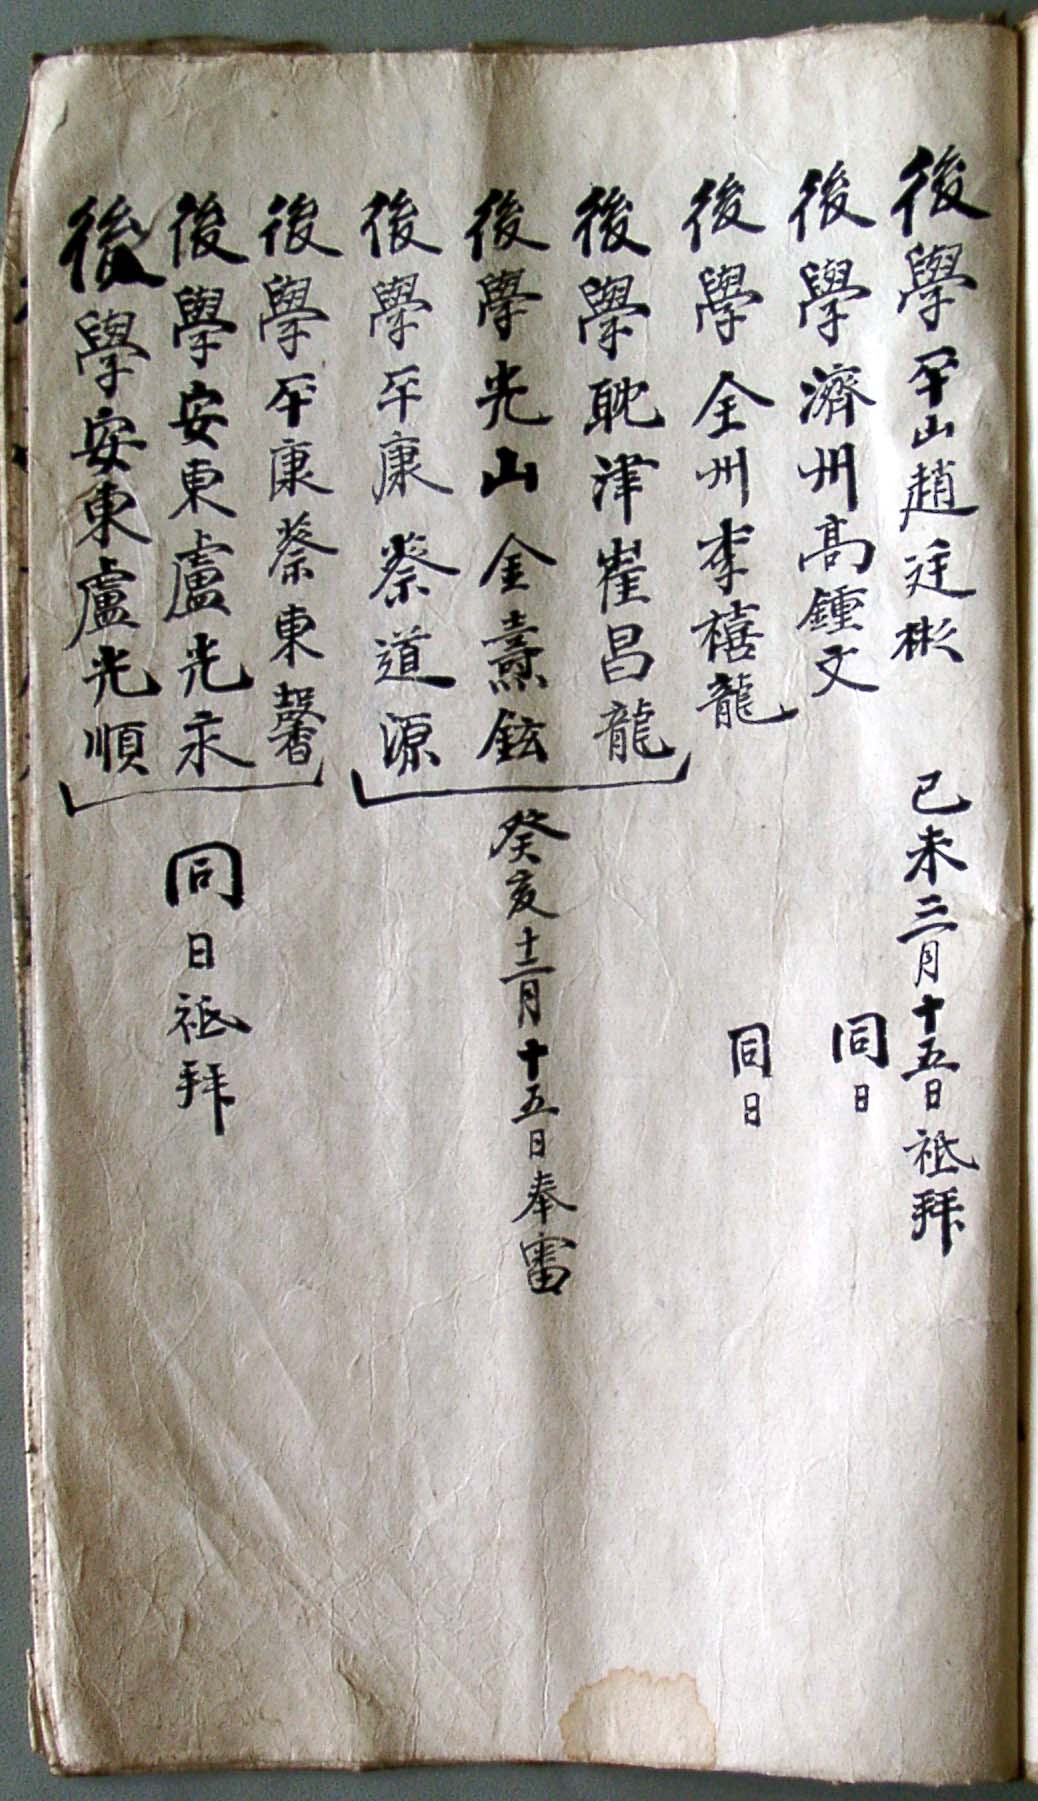 後學平山趙廷彬 己未三月十五日祗拜
後學濟州高鍾文 同日
後學全州李禧龍 同日
後學耽津崔昌龍
後學光山金燾鉉 癸亥十二月十五日奉審
後學平康蔡道源
後學平康蔡東馨
後學安東盧光永 同日祗拜
後學安東盧光順